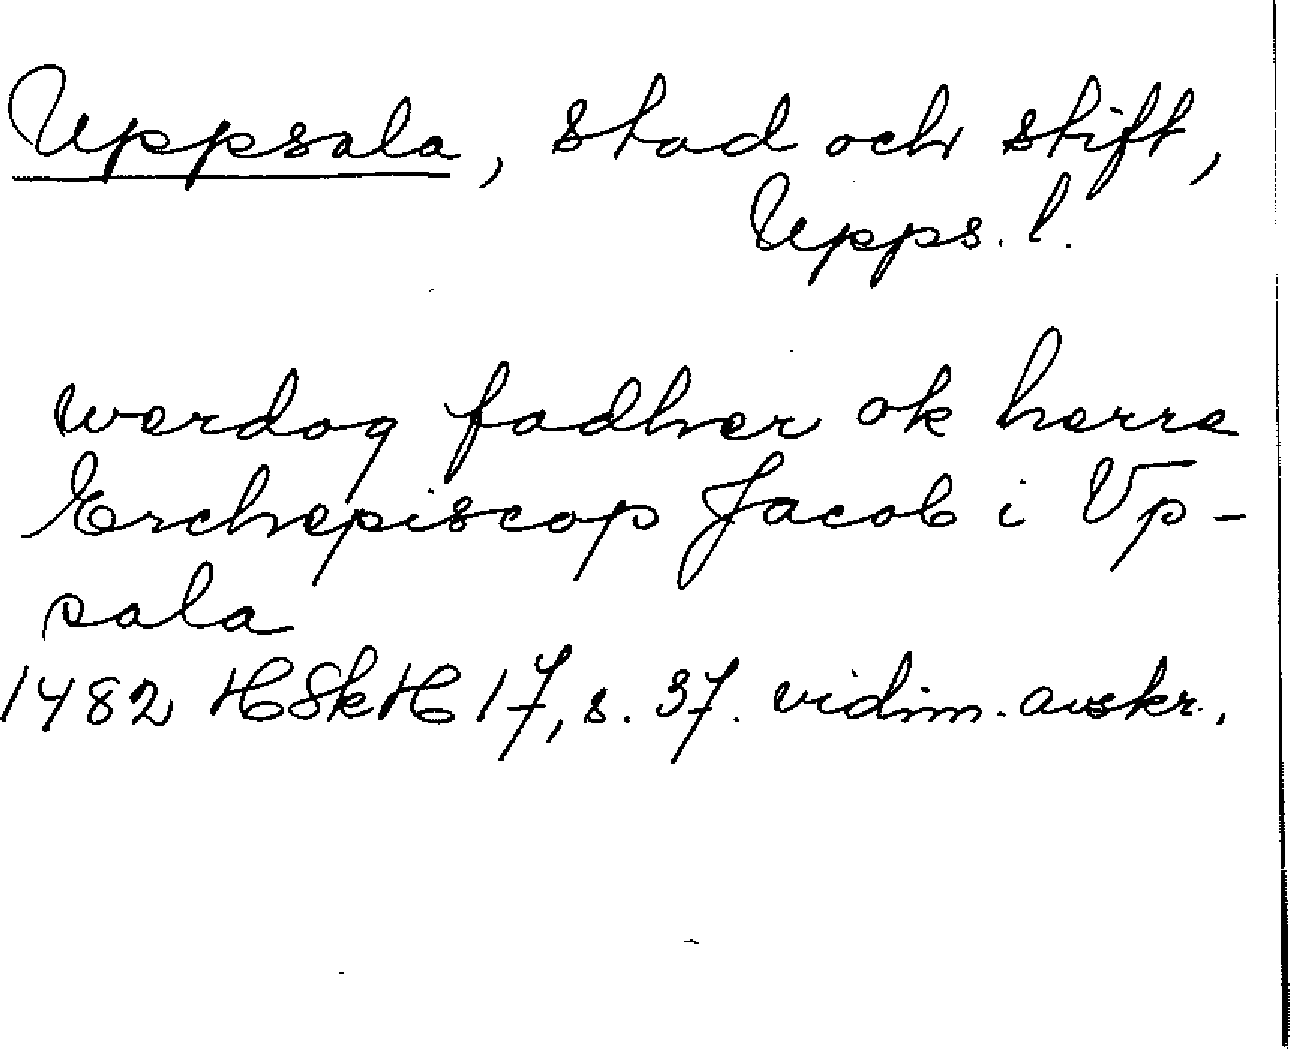 Uppsala, stad och stift,
Upps. l.
werdog fadher ok herre
Erchepiscop Jacob i Vp-
sala
1482 HSkH 17, s. 37. vidim. avskr.,